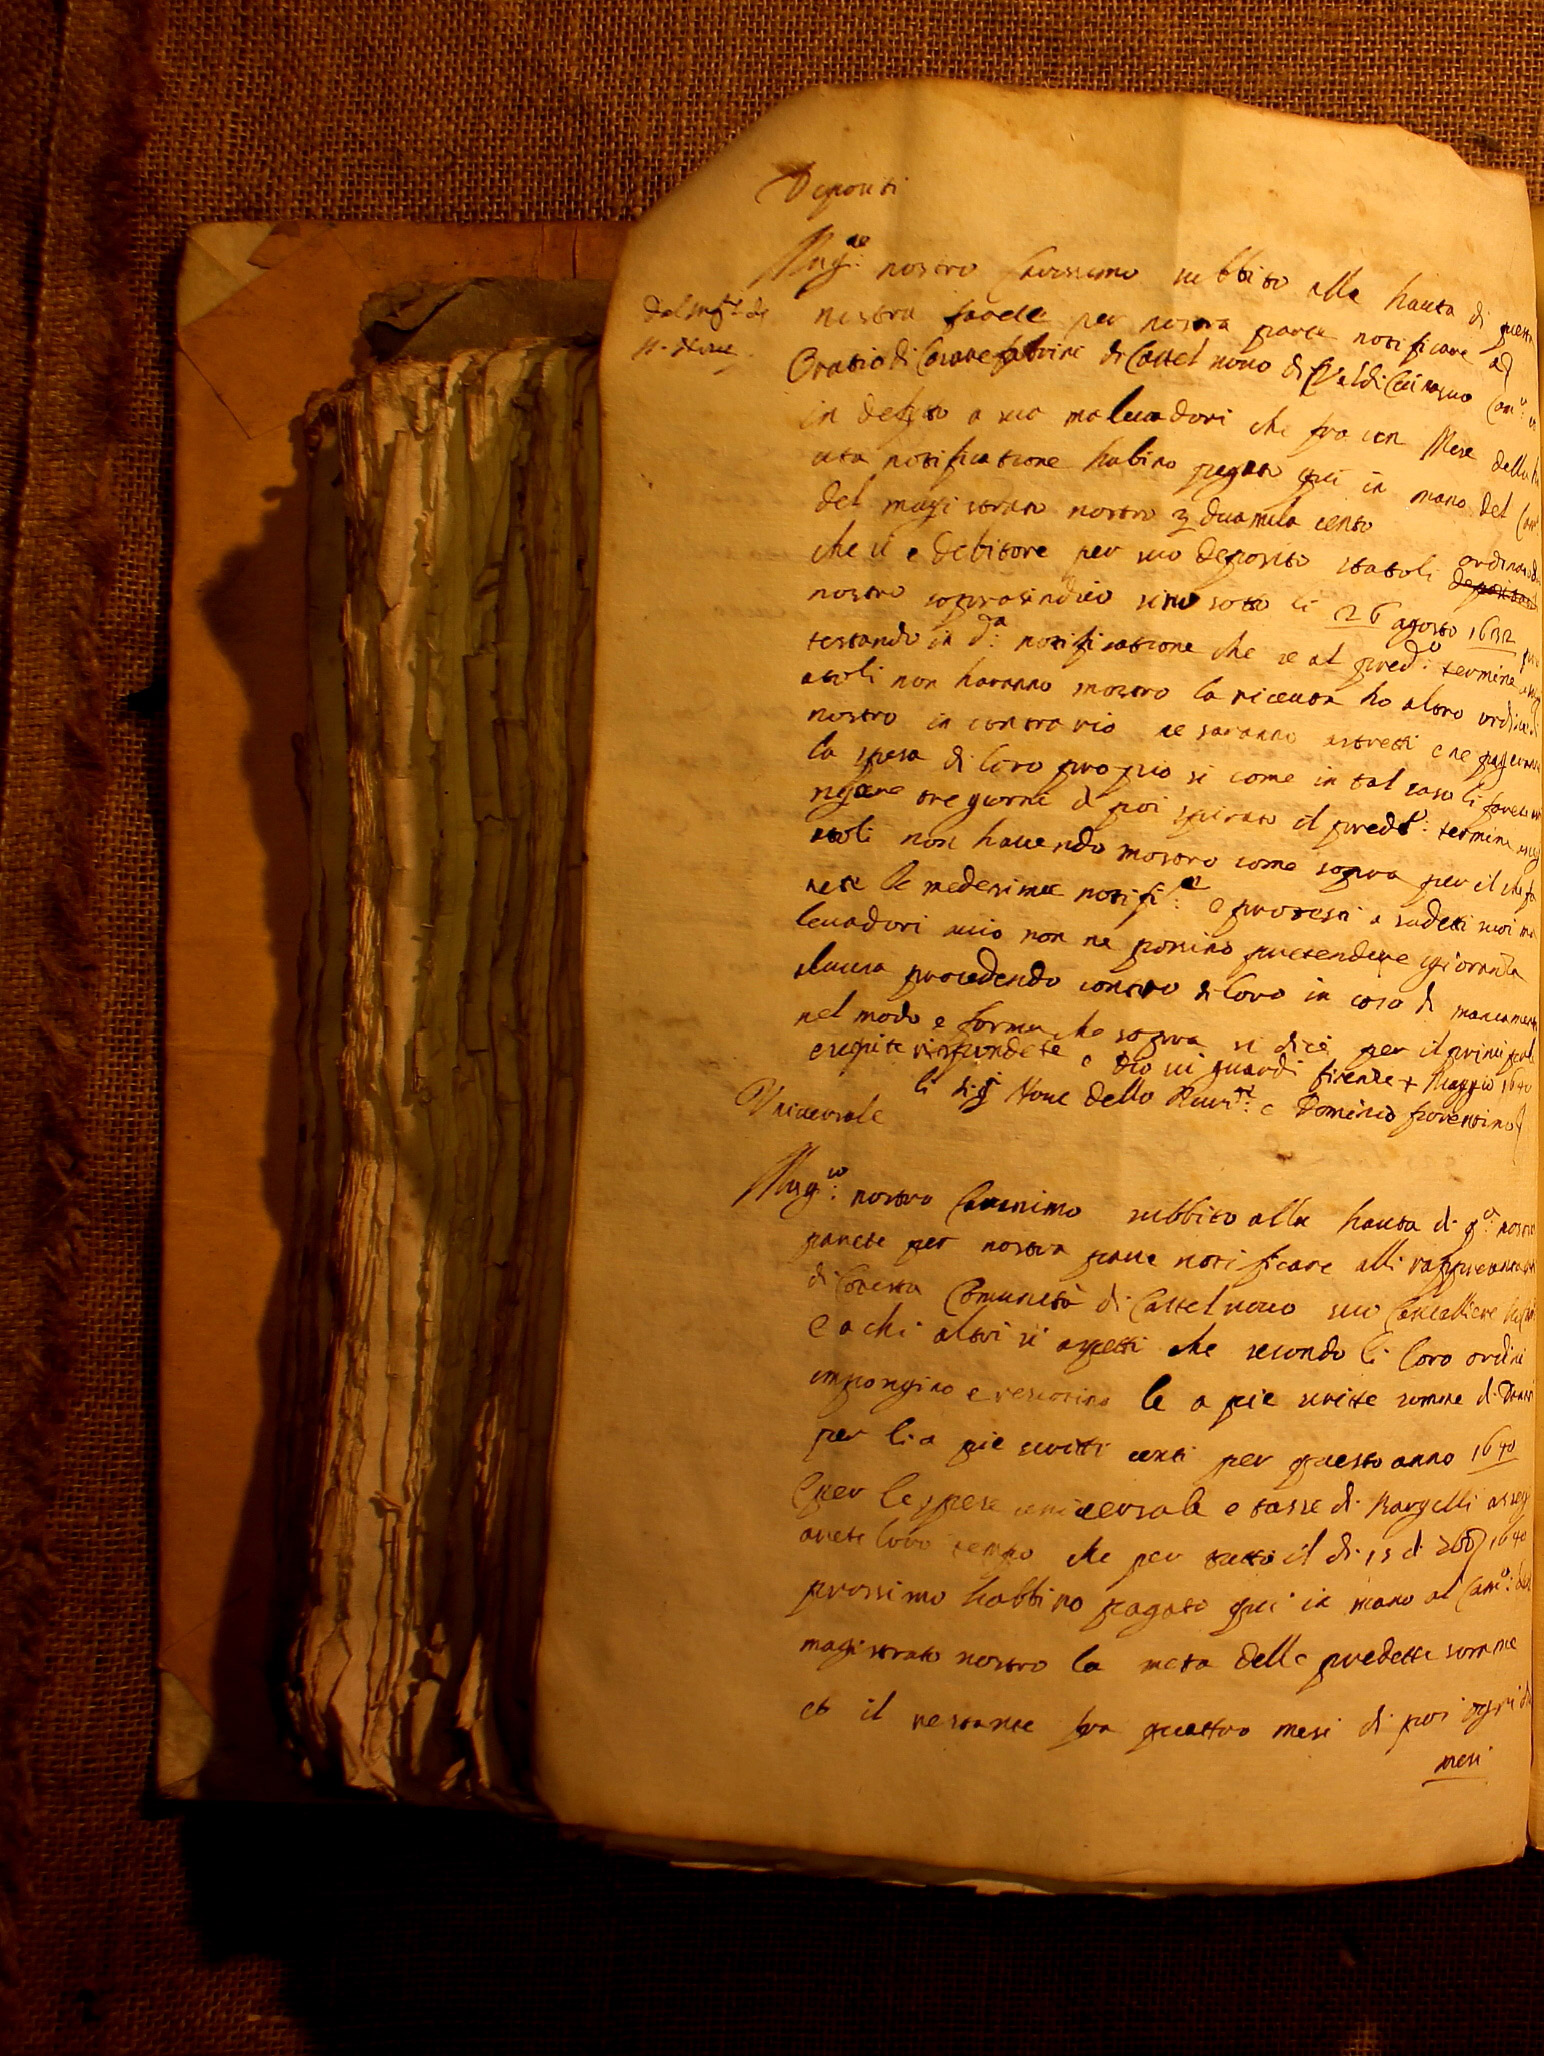 Depositi
Mag.re nostro Carissimo subbito alla hauta di questa
dal mag.to de
ss. Nove
nostra farete per nostra parte notificare ad
Oratio di Cesare di Castel nuovo di Val di Cecina suo
in detto a sua malevadori che fra un Mese della
notificatione habino pagato qui in mano del
del magistrato nostro duamila cento
che si e debitore per suo deposito ordinario
depositario
nostro soprasindico sino sotto li 26 agosto 1632
testando in d.a notificatione che se al pred.o termine
atoli non haranno mostro la riceuta ho altro ordine
nostro in contrario ne saranno astretti e ne pagerano
la spesa di loro proprio si come in tal caso li farete
tre giorni di poi spirato il pred.o termine
atoli non hauendo mostro come sopra per il che fa
rete le medesime notifi.ni e protesti a sudetti suoi ma
leuadori accio non ne possino pretendere ignoranza
alcuna procedendo contro di loro in caso di mancamento
nel modo e forma che sopra si dice per il principale
eseguite rispondete e Dio ui guardi firenze 4 Maggio 1640
li Sig.i Noue dello e Dominio fiorentino
Vniuersale
Mag.co nostro Carissimo subbito alla hauta di q.a nostra
farete per nostra parte notificare alli rappresentanti
di cotesta Comunità di Castel nuouo suo Cancelliere
e a chi altri si aspetti che secondo li loro ordini
imponghino e riscotino le a pie scritte somme di
per li a pie scritti conti per questo anno 1640
per le spese uniuersale e tasse di Bargelli asseg
nateli loro tempo che per tutto il di 15 di 1640
prossimo habbino pagato qui in mano al Cam.o del
magistrato nostro la meta delle predette somme
et il restante fra quattro mesi di poi
mesi